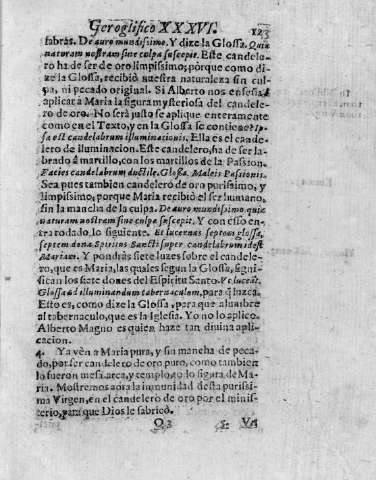 Geroglifico XXXVI. 123
fabras. De auro mundissimo. Y dize la Glossa. Quia
naturam nostram sine culpa suscepit. Este candele-
ro ha de ser de oro limpissimo; porque como di-
ze la Glossa, recibiò nuestra naturaleza sin cul-
pa, ni pecado original. Si Alberto nos enseña à
aplicar à Maria la figura mysteriosa del candele-
ro de oro. No serà justo se aplique enteramente
como en el Texto, y en la Glossa se contiene? Ip-
sa est candelabrum illuminationis. Ella es el cande-
lero de iluminacion. Este candelero, ha de ser la-
brado à martillo, con los martillos de la Passion.
Facies candelabrum ductile. Glossa. Maleis Passionis.
Sea pues tambien candelero de oro purissimo, y
limpissimo, porque Maria recibiò el ser humano,
sin la mancha de la culpa. De auro mundissimo. quia
naturam nostram sine culpa suscepit. Y con esso en-
tra rodado lo siguiente. Et lucernas septem glossa,
septem dona Spiritus Sancti super candelabrum idest
Mariam. Y pondràs siete luzes sobre el candele-
ro, que es Maria, las quales segun la Glossa, signi-
fican los siete dones del Espiritu Santo. Vt luceāt.
Glossa ad illuminandum tabernaculum, para q̃ luzcā.
Esto es, como dize la Glossa, para que alumbre
al tabernaculo, que es la Iglesia. Yo no lo aplico.
Alberto Magno es quien haze tan divina apli-
cacion.
4. Ya vèn a Maria pura, y sin mancha de peca-
do, por ser candelero de oro puro, como tambien
lo fueron mesa, arca, y templo, todo figura de Ma-
ria. Mostremos aora la inmunidad desta purissi-
ma Virgen, en el candelero de oro por el minis-
terio, para que Dios le fabricò.
Q 3 §. Vn